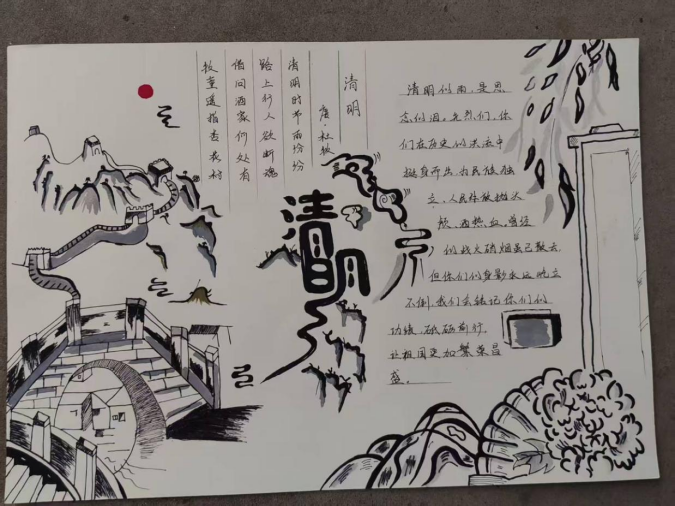 清明
唐·杜牧
清明时节雨纷纷
路上行人欲断魂
借问酒家何处有
牧童遥指杏花村
清明
清明的雨，是思
念的泪，先烈们，你
们在历史的洪流中
挺身而出，为民族独
立，人民解放抛头
颅，洒热血，曾经
的战火硝烟虽已散去
但你们的身影永远屹立
不倒，我们会铭记你们的
功绩，砥砺前行，
让祖国更加繁荣昌
盛。